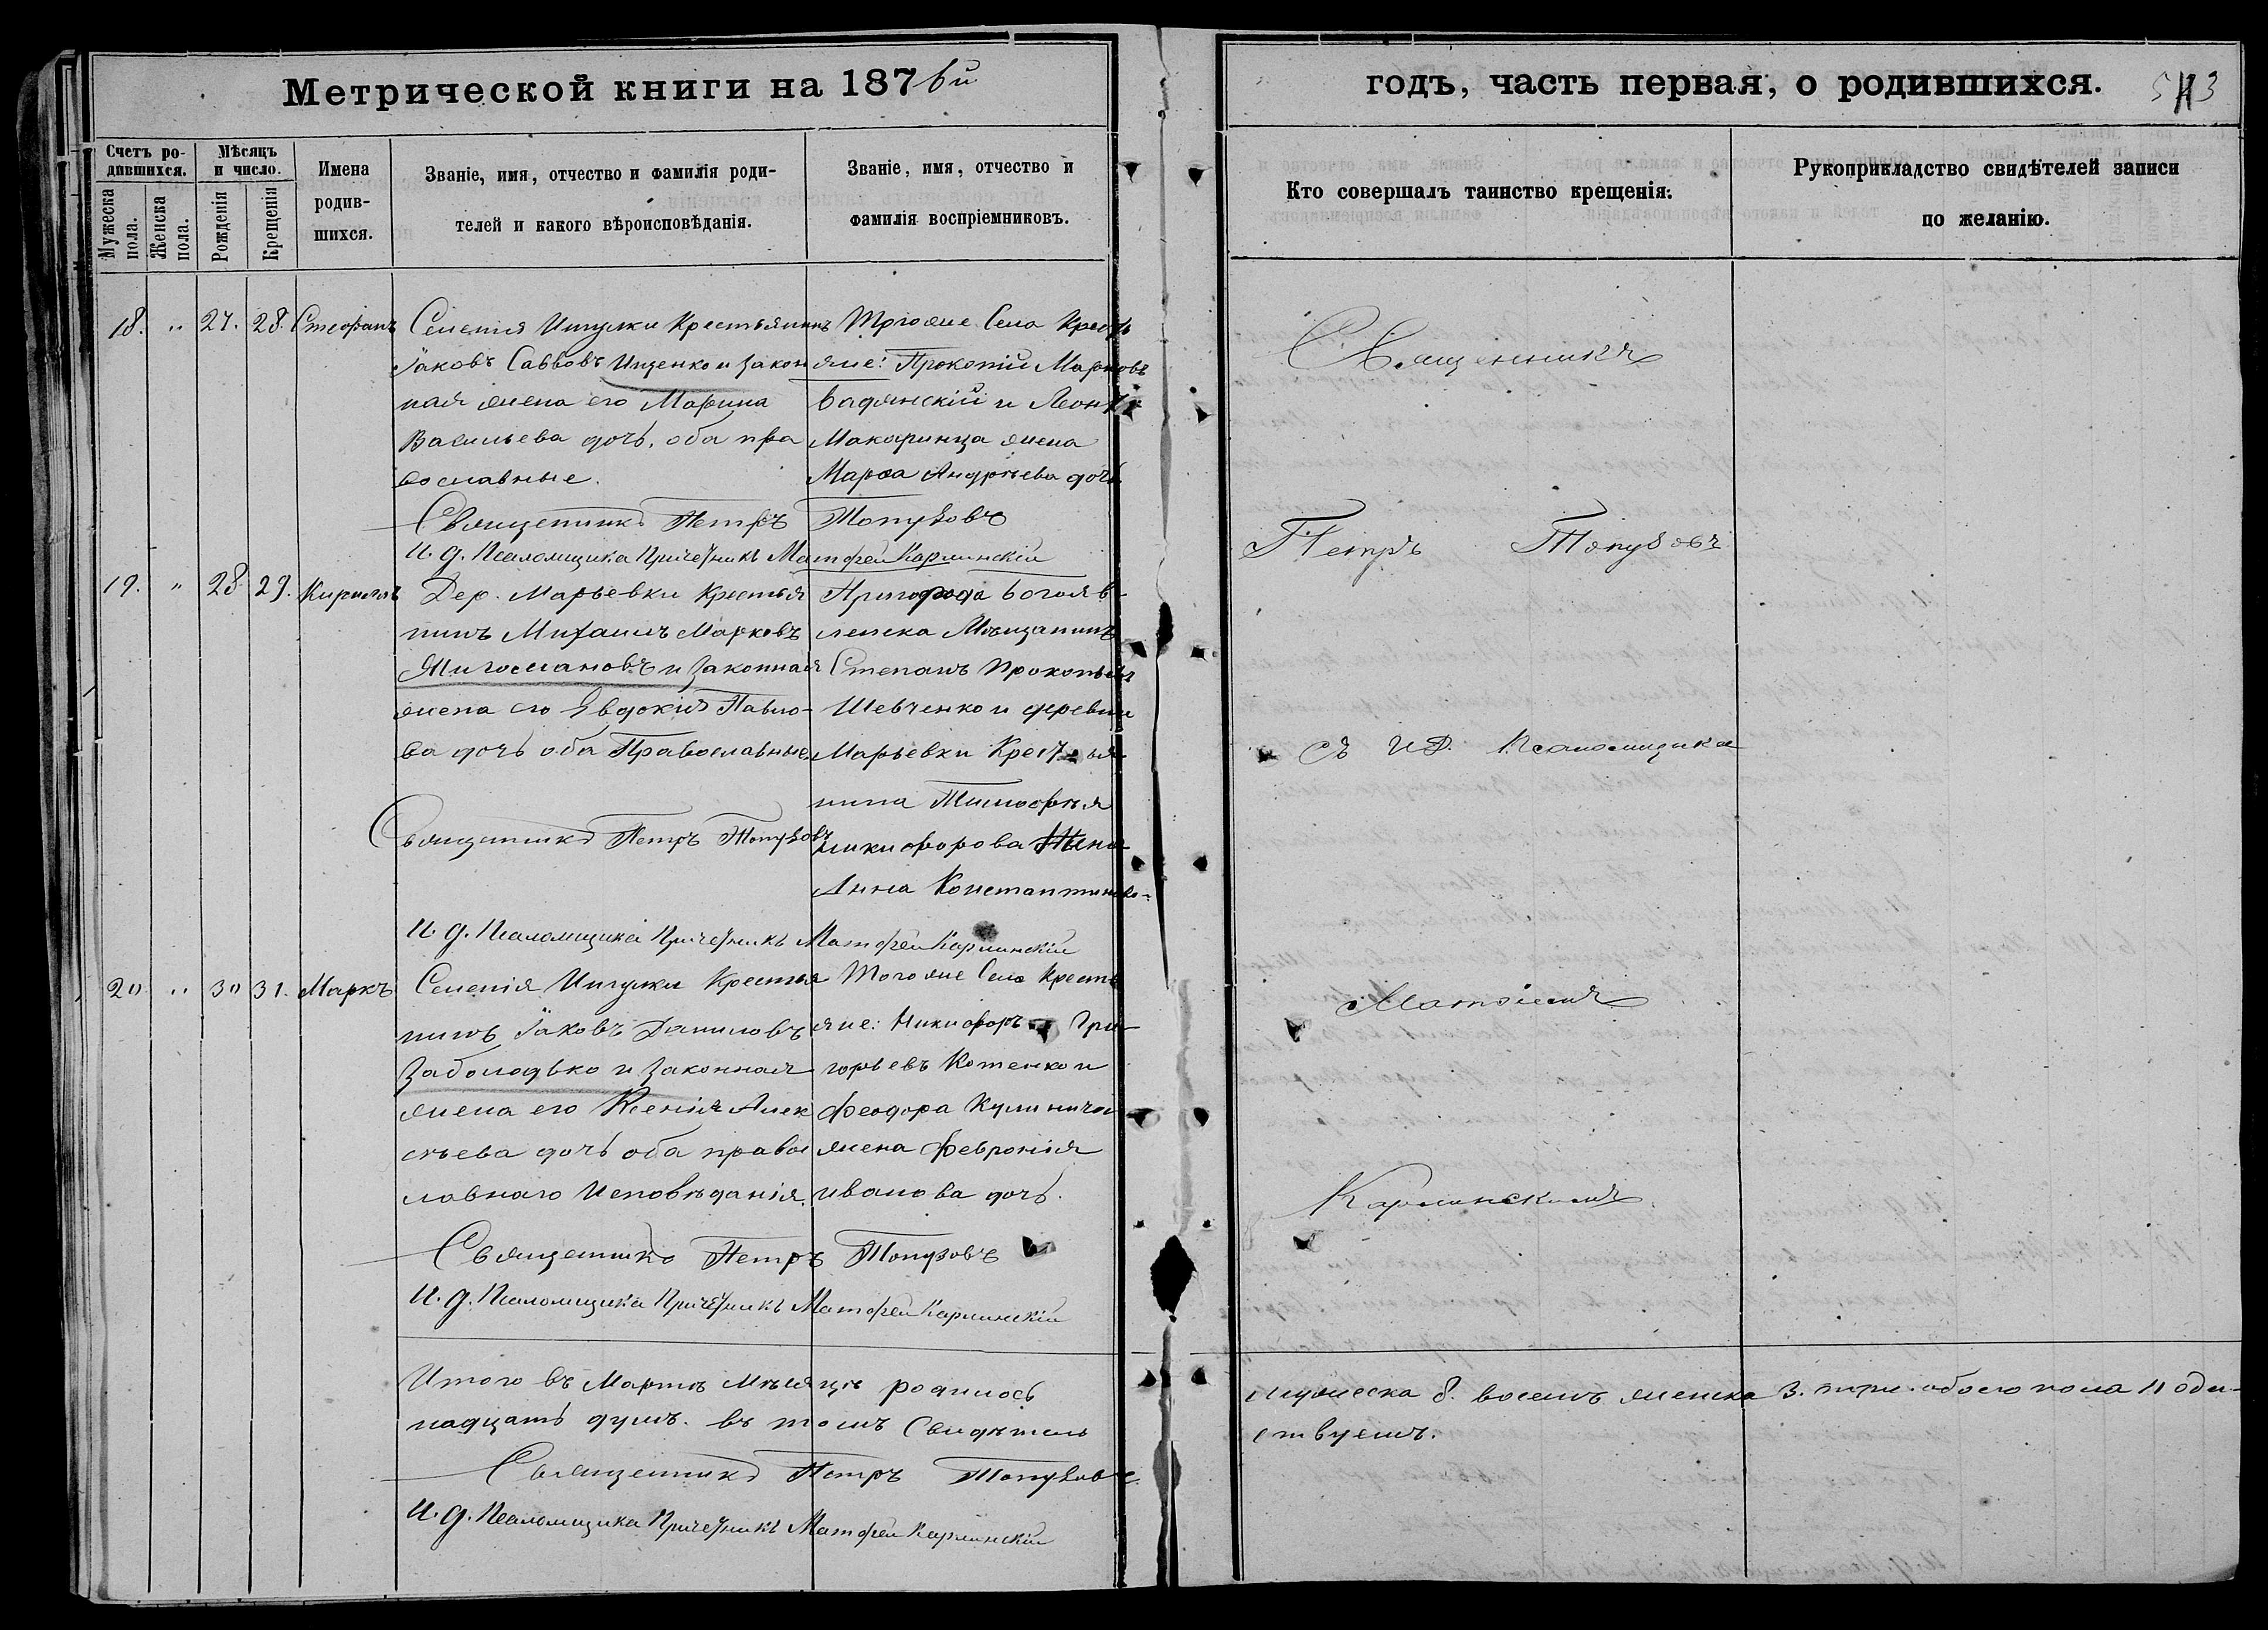 Метрической книги на 1876й
годъ, часть первая, о родившихся.
Счетъ родившихся.
Мужеска пола.
Женска пола.
Мѣсяцъ и число.
Рожденія
Крещенія
Имена родившихся.
Званіе, имя, отчество и фамилія родителей и какого вѣроисповѣданія.
Званіе, имя, отчество и фамилія воспріемниковъ.
Кто совершалъ таинство крещенія.
Рукоприкладство свидѣтелей записи по желанію.
18. " 27. 28. Стефанъ
Селенія Ингулки Крестьянинъ
Іаковъ Саввовъ Ищенко и закон
ная жена его Марина
Васильева дочь, оба пра
вославные.
Тогоже Села Кресть
яне: Прокопій Марковъ
Вадянскій и Леонтія
Макаринца жена
Марѳа Андреѣва дочь
Священникъ Петръ Топузовъ
И. д. Псаломщика Причетникъ Матфей Карлинскій
19. " 28 29. Кириллъ
Дер. Марьевки Крестья
нинъ Михаилъ Марковъ
и Законная
жена его Евдокія Павло-
ва дочь оба Православные
Пригорода Богояв-
ленска Мѣщанинъ
Степанъ Прокопьевъ
Шевченко и деревни
Марьевки Крестья
нина Тимофѣя
Никифорова Жена
Анна Константинова-
Священникъ Петръ Топузовъ
И. д. Псаломщика Причетникъ Матфей Карлинскій
20 " 30 31. Маркъ
Селенія Ингулки Крестья
нинъ Іаковъ Даниловъ
Заболодько и Законная
жена его Ксенія Алек
сѣева дочь оба правос
лавнаго Исповѣданія.
Тогоже Села Кресть
яне: Никифоръ Гри-
горьевъ Котенко и
Феодора Кулинича
жена Февронія
Иванова дочь.
Священникъ Петръ Топузовъ
И. д. Псаломщика Причетникъ Матфей Карлинскій
Итого въ Мартѣ Мѣсяцѣ родилось
надцать душъ. въ томъ Свидѣтель
Священникъ Петръ Топузовъ
И. д. Псаломщика Причетникъ Матфей Карлинскій
Священникъ
Петръ Топузовъ
съ И.Д. Псаломщика
Матфіемъ
Карлинскимъ
мужеска 8. восемъ женска 3. три. обоего пола 11 оди-
ствуемъ.